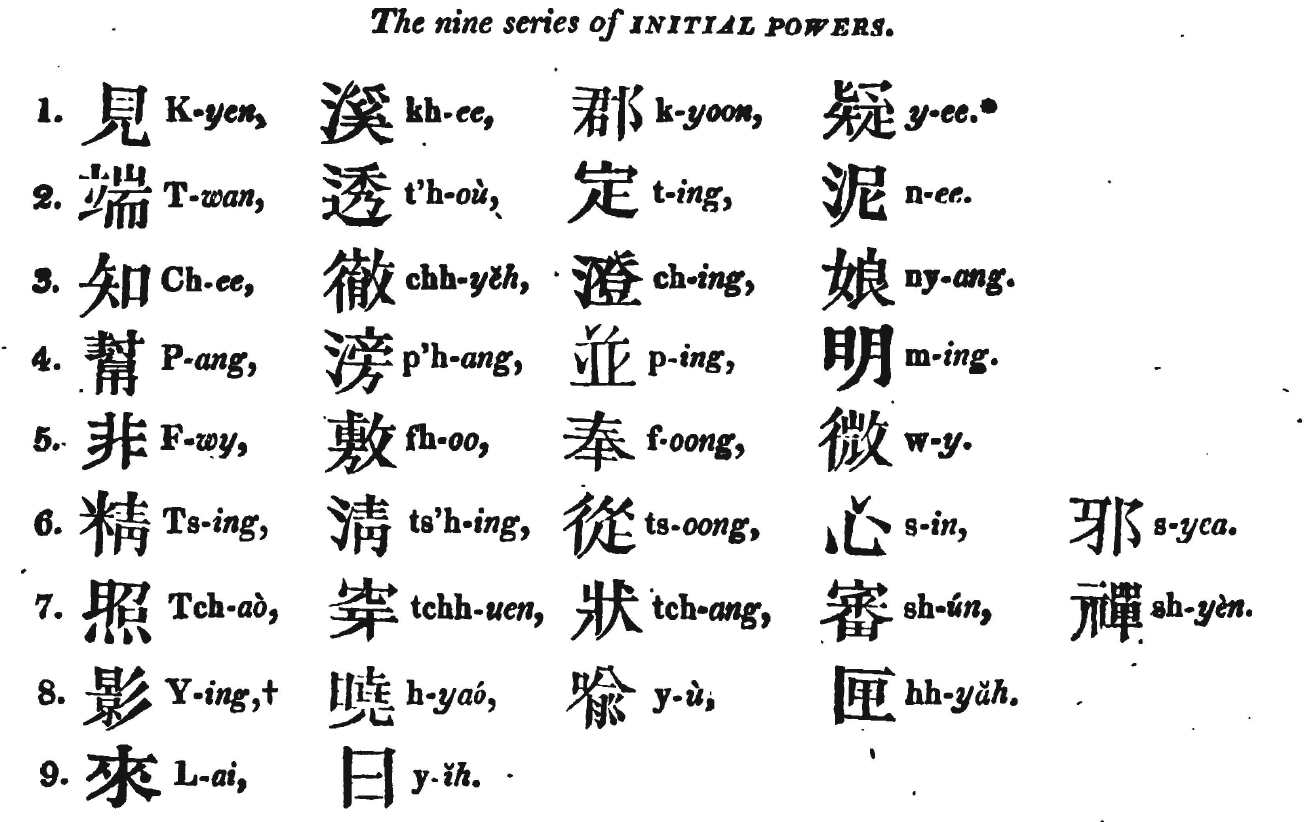 The nine series of INITIAL POWERS.
1. 見 K-yen, 溪 kh-ee, 郡 k-yoon, 疑 y-ee.*
2. 端 T-wan, 透 t'h-où, 定 t-ing, 泥 n-ee.
3. 知 Ch-ee, 徹 chh-yĕh, 澄 ch-ing, 娘 ny-ang.
4. 幫 P-ang, 滂 p'h-ang, 並 p-ing, 明 m-ing.
5. 非 F-wy, 敷 fh-oo, 奉 f-oong, 微 w-y.
6. 精 Ts-ing, 清 ts'h-ing, 從 ts-oong, 心 s-in, 邪 s-yea.
7. 照 Tch-aò, 穿 tchh-uen, 狀 tch-ang, 審 sh-ún, 禪 sh-yèn.
8. 影 Y-ing,† 曉 h-yaó, 喻 y-ù, 匣 hh-yăh.
9. 來 L-ai, 日 y-ĭh.